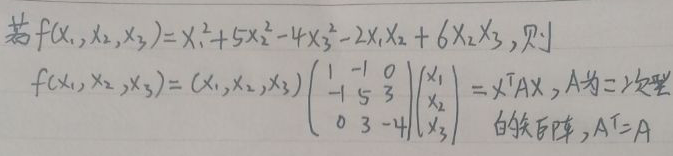 若f(x₁,x₂,x₃)=x₁²+5x₂²-4x₃²-2x₁x₂+6x₂x₃,则
f(x₁,x₂,x₃)=(x₁,x₂,x₃)(1 -1 0 -1 5 3 0 3 -4)(x₁ x₂ x₃)=xᵀAx,A为二次型
的矩阵,Aᵀ=A